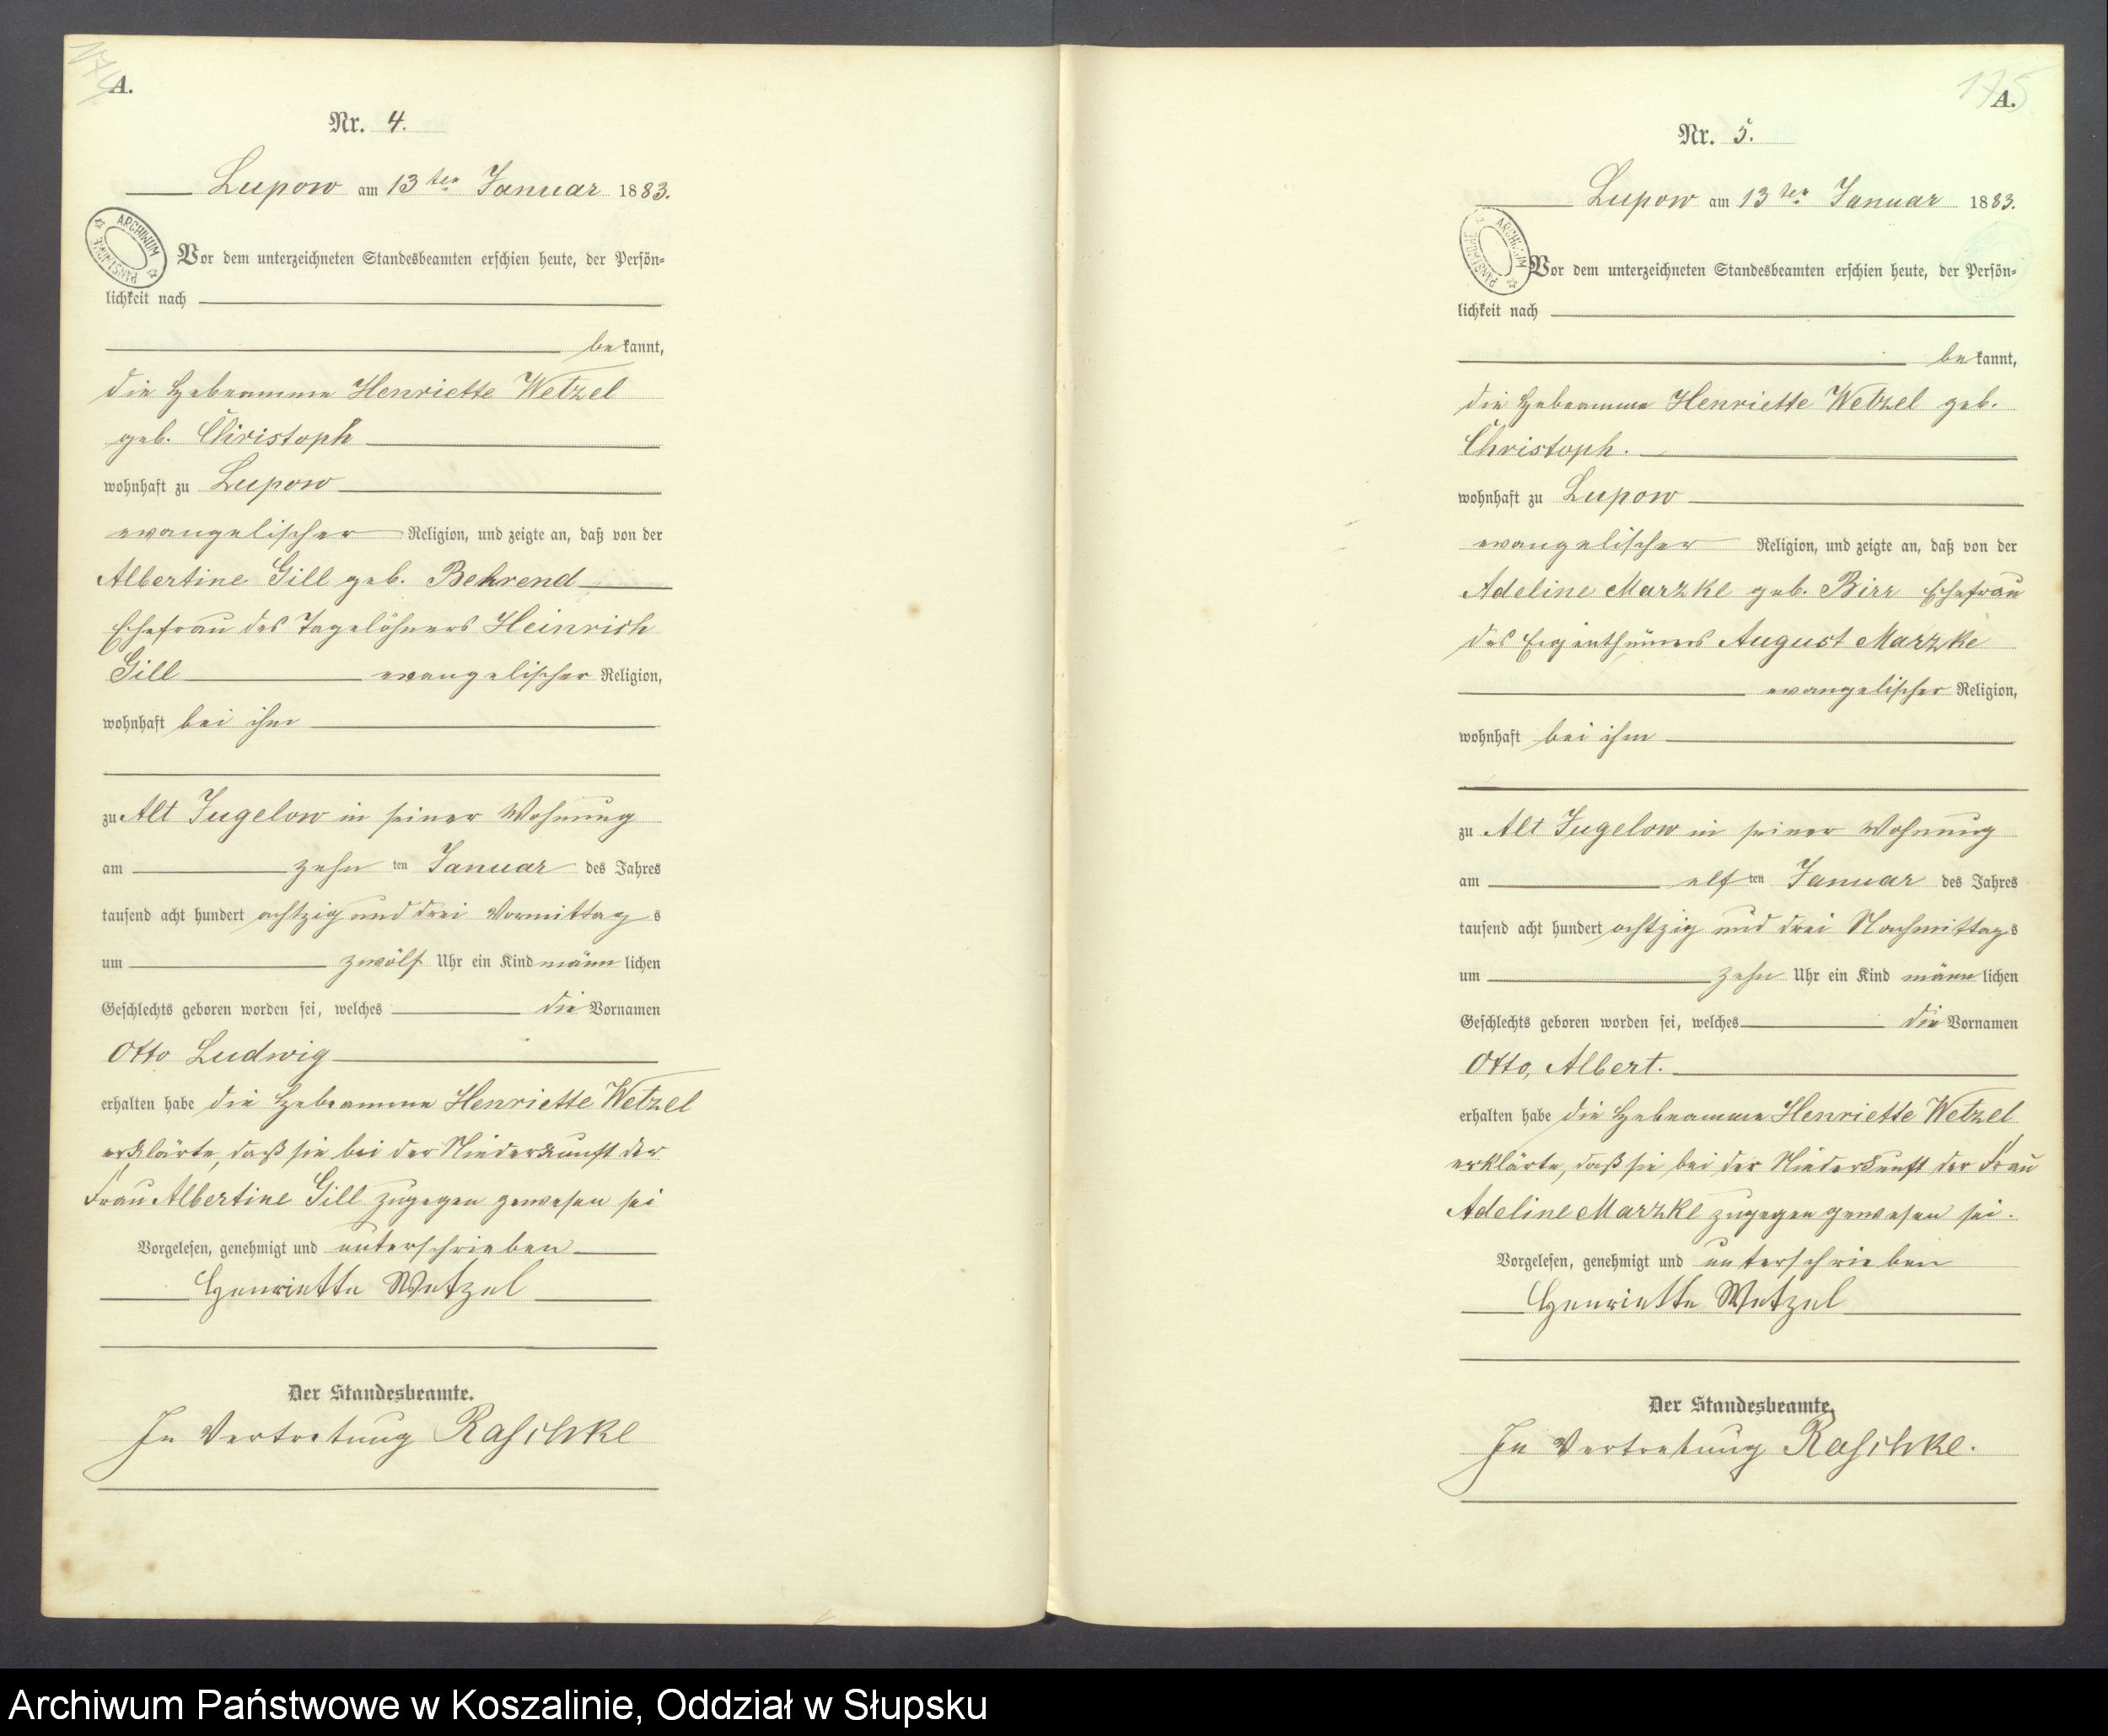 174
A.
Nr. 4.
Lupow am 13 ten Januar 1883.
ARCHIWUM PAŃSTWOWE
Vor dem unterzeichneten Standesbeamten erschien heute, der Persön-
lichkeit nach
be kannt,
die Hebeamme Henriette Wetzel
geb. Christoph
wohnhaft zu Lupow
evangelischer Religion, und zeigte an, daß von der
Albertine Gill geb. Behrend
Ehefrau des Tagelöhners Heinrich
Gill evangelischer Religion,
wohnhaft bei ihm
zu Alt Jugelow in seiner Wohnung
am zehn ten Januar des Jahres
tausend acht hundert achtzig und drei Vormittag s
um zwölf Uhr ein Kind männ lichen
Geschlechts geboren worden sei, welches die Vornamen
Otto Ludwig
erhalten habe die Hebeamme Henriette Wetzel
erklärte, daß sie bei der Niederkunft der
Frau Albertine Gill zugegen gewesen sei
Vorgelesen, genehmigt und unterschrieben
Henriette Wetzel
Der Standesbeamte.
In Vertretung Raschke
175
A.
Nr. 5.
Lupow am 13 ten Januar 1883.
ARCHIWUM PAŃSTWOWE
Vor dem unterzeichneten Standesbeamten erschien heute, der Persön-
lichkeit nach
be kannt,
die Hebeamme Henriette Wetzel geb.
Christoph.
wohnhaft zu Lupow
evangelischer Religion, und zeigte an, daß von der
Adeline Marzke geb. Birr Ehefrau
des Eigenthümers August Marzke
evangelischer Religion,
wohnhaft bei ihm
zu Alt Jugelow in seiner Wohnung
am elf ten Januar des Jahres
tausend acht hundert achtzig und drei Nachmittag s
um zehn Uhr ein Kind männ lichen
Geschlechts geboren worden sei, welches die Vornamen
Otto, Albert.
erhalten habe die Hebeamme Henriette Wetzel
erklärte, daß sie bei der Niederkunft der Frau
Adeline Marzke zugegen gewesen sei.
Vorgelesen, genehmigt und unterschrieben
Henriette Wetzel
Der Standesbeamte.
In Vertretung Raschke.
Archiwum Państwowe w Koszalinie, Oddział w Słupsku